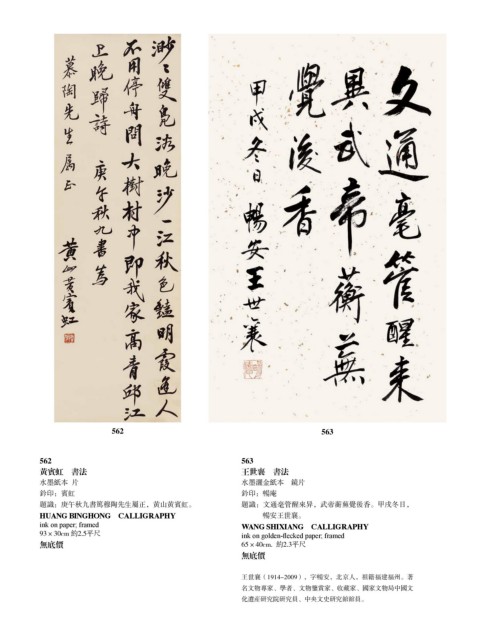 渺〻雙鳧落晚沙一江秋色豔明霞逢人
不用停舟問大樹村中即我家高青邱江
上晚歸詩 庚午秋九書為
慕陶先生屬正
黃山黃賓虹
562
文通毫管醒來
異武帝蘅蕪
覺後香
甲戌冬日 暢安王世襄
563
562
黃賓虹 書法
水墨紙本 片
鈐印：賓虹
題識：庚午秋九書篤穆陶先生屬正，黃山黃賓虹。
HUANG BINGHONG CALLIGRAPHY
ink on paper; framed
93 x 30cm 約2.5平尺
無底價
563
王世襄 書法
水墨灑金紙本 鏡片
鈐印：暢庵
題識：文通毫管醒來异，武帝蘅蕪覺後香。甲戌冬日，
暢安王世襄。
WANG SHIXIANG CALLIGRAPHY
ink on golden-flecked paper; framed
65 x 40cm. 約2.3平尺
無底價
王世襄（1914~2009），字暢安，北京人，祖籍福建福州。著
名文物專家、學者、文物鑒賞家、收藏家、國家文物局中國文
化遺産研究院研究員、中央文史研究館館員。